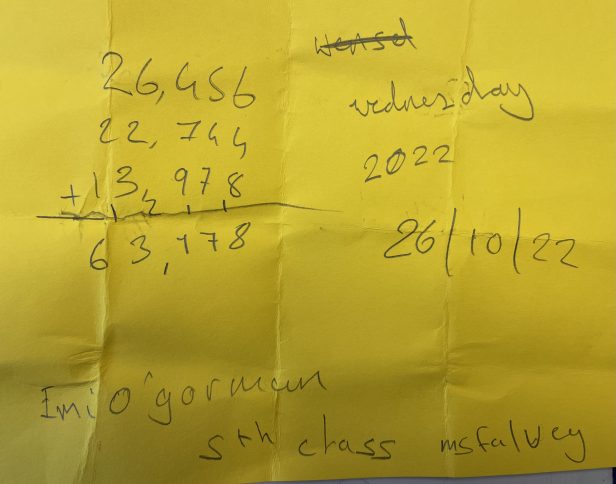 wensd
26,456
22,744
+13,978
1 2 1 1
63,178
wednesday
2022
26/10/22
Emi o'gorman
5th class msfalvey